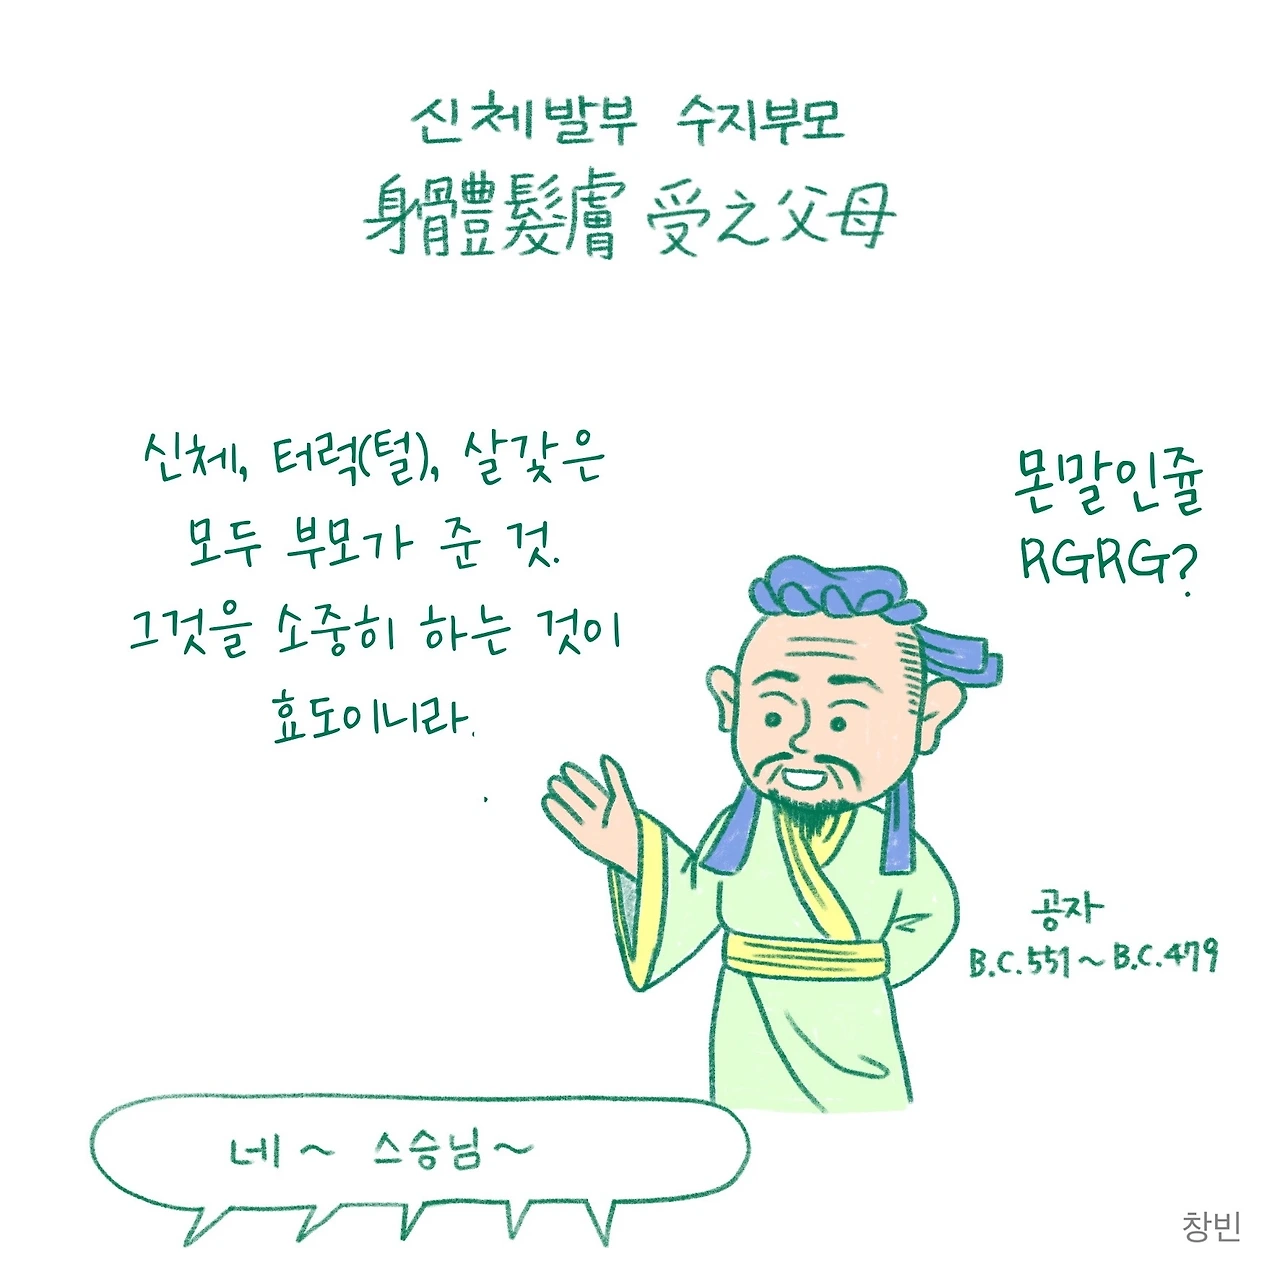 신체발부 수지부모
身體髮膚 受之父母
신체, 터럭(털), 살갗은
모두 부모가 준 것.
그것을 소중히 하는 것이
효도이니라.
몬말인쥴
RGRG?
공자
B.C.551~B.C.479
네~ 스승님~
창빈